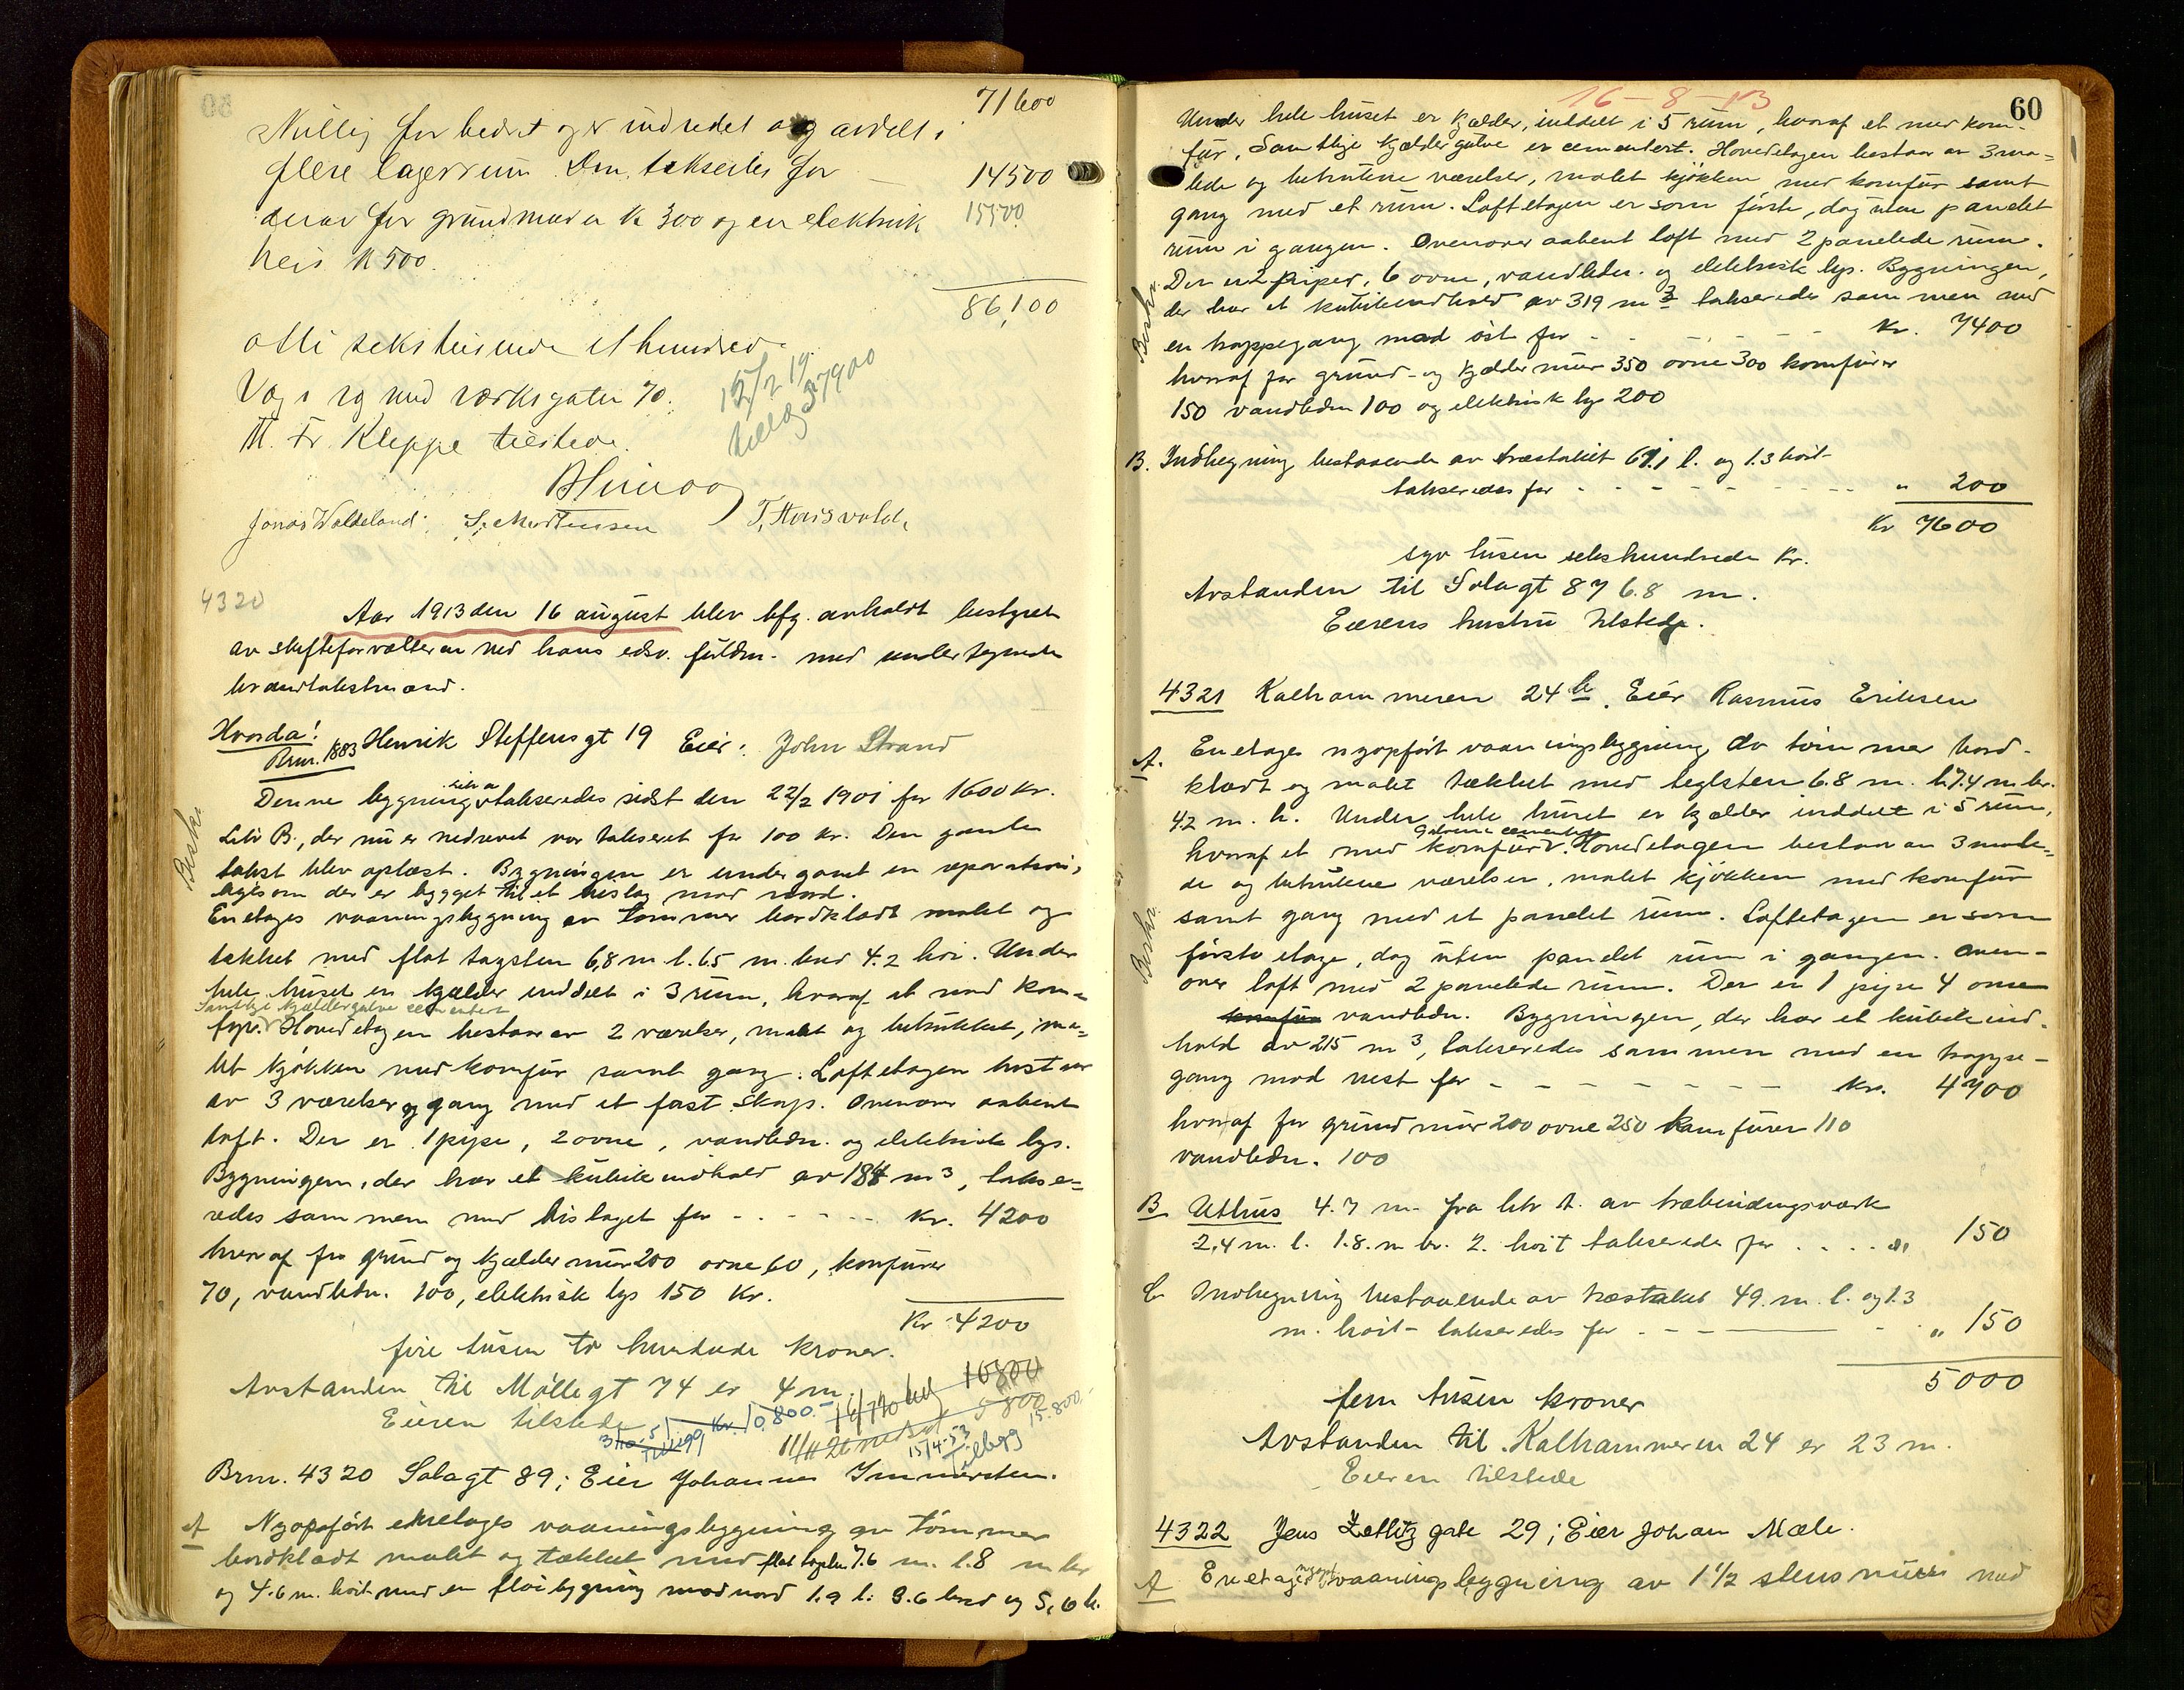 71600
betydelig forbedret og er indredet og avdelt i
flere lagerrum. Den takseres for — 14500
derav for grundmur kr 300 og en elektrisk 15500
heis kr 500.
86,100
otti sekstusinde et hundred
Vag 1 og nedverksgaten 70.
15/2 19 tillæg 37900
M. Fr. Kleppe tilstede.
Jonas Waldeland. S. Mortensen T. Hausvold.
4320
Aar 1913 den 16 august blev bfg. avholdt bestyret
av skifteforvalteren ved hans edsv. fuldm. med undertegnede
brandtakstmænd.
Hvorda!
Brnr. 1883 Henrik Steffensgt 19 Eier: John Strand
Beskr.
Denne bygning litr a takseredes sidst den 22/2 1901 for 1600 kr.
Litr B., der nu er nedrevet var takseret for 100 kr. Den gamle
takst blev oplæst. Bygningen er undergaaet en reparation,
ligesom der er bygget til et bislag mod nord.
En etages vaaningsbygning av tømmer bordklædt malet og
tækket med flat tagsten 6,8 m. l. 6.5 m. bred 4.2 høi. Under
hele huset er kjælder inddelt i 3 rum, hvoraf et med kom-
Samtlige kjældergulve cementert
fyr. Hovedetagen bestaar av 2 værelser, malet og betrukket, ma-
let kjøkken med komfur samt gang. Loftetagen bestaar
av 3 værelser og gang med et fast skap. Ovenover aabent
loft. Der er 1 pipe, 2 ovne, vandledn. og elektrisk lys.
Bygningen, der har et kubikindhold av 184 m³, takse-
redes sammen med bislaget for - - - - - - Kr. 4200
hvoraf for grund og kjældermur 200 ovne 60, komfurer
70, vandledn. 100, elektrisk lys 150 Kr.
Kr 4200
fire tusen to hundrede kroner.
Avstanden til Møllegt 74 er 4 m.
Eieren tilstede
Tillegg Kr. 10.800.-
10800
5800
15/4-53 Tillegg 15.800,-
Brnr. 4320 Solagt 89; Eier Johannes Immersten.
A Nyopført enetages vaaningsbygning av tømmer
bordklædt malet og tækket med flat tagsten 7.6 m. l. 8 m br
og 4.6 m. høit med en fløibygning mod nord 1.9 l. 3.6 bred og 5,6 h.
60
16-8-13
Under hele huset er kjælder, inddelt i 5 rum, hvoraf et med kom-
fur. Samtlige kjældergulve er cementert. Hovedetagen bestaar av 3 ma-
lede og betrukne værelser, malet kjøkken med komfur samt
gang med et rum. Loftetagen er som første, dog uten panelet
rum i gangen. Ovenover aabent loft med 2 panelede rum.
Der er 2 piper, 6 ovne, vandledn. og elektrisk lys. Bygningen,
Beskr.
der har et kubikindhold av 319 m³ takseredes sammen med
en trappegang mod øst for - - - - - Kr. 7400
hvoraf for grund- og kjældermur 350 ovne 300 komfurer
150 vandledn 100 og elektrisk lys 200
B. Indhegning bestaaende av træstakit 61.1 l. og 1.3 høit
takseredes for - - - - - - - - - " 200
Kr 7600
syv tusen sekshundrede Kr.
Avstanden til Solagt 87 6.8 m.
Eierens hustru tilstede.
4321 Kalhammeren 24 b. Eier Rasmus Eriksen
A. En etages nyopført vaaningsbygning av tømmer bord-
klædt og malet tækket med teglsten 6.8 m. l. 7.4 m. br.
4.2 m. h. Under hele huset er kjælder inddelt i 5 rum,
Gulvene cementert
hvoraf et med komfur. Hovedetagen bestaar av 3 male-
de og betrukne værelser, malet kjøkken med komfur
Beskr.
samt gang med et panelet rum. Loftetagen er som
første etage, dog uten panelet rum i gangen. Oven-
over loft med 2 panelede rum. Der er 1 pipe 4 ovne
komfur vandledn. Bygningen, der har et kubikind-
hold av 215 m³, takseredes sammen med en trappe-
gang mod vest for - - - - - - - - Kr. 4700
hvoraf for grundmur 200 ovne 250 komfurer 110
vandledn. 100
B Uthus 4.7 m. fra litr A. av træbindingsværk
2.4 m. l. 1.8. m br. 2. høit takseredes for . . . . " 150
C Indhegning bestaaende av træstakit 49. m. l. og 1.3
m. høit takseredes for - - - - " 150
5000
fem tusen kroner
Avstanden til Kalhammeren 24 er 23 m.
Eieren tilstede
4322 Jens Zetlitz gate 29; Eier Johan Mæle.
A En etages nyopf. vaaningsbygning av 1 1/2 stens mur med